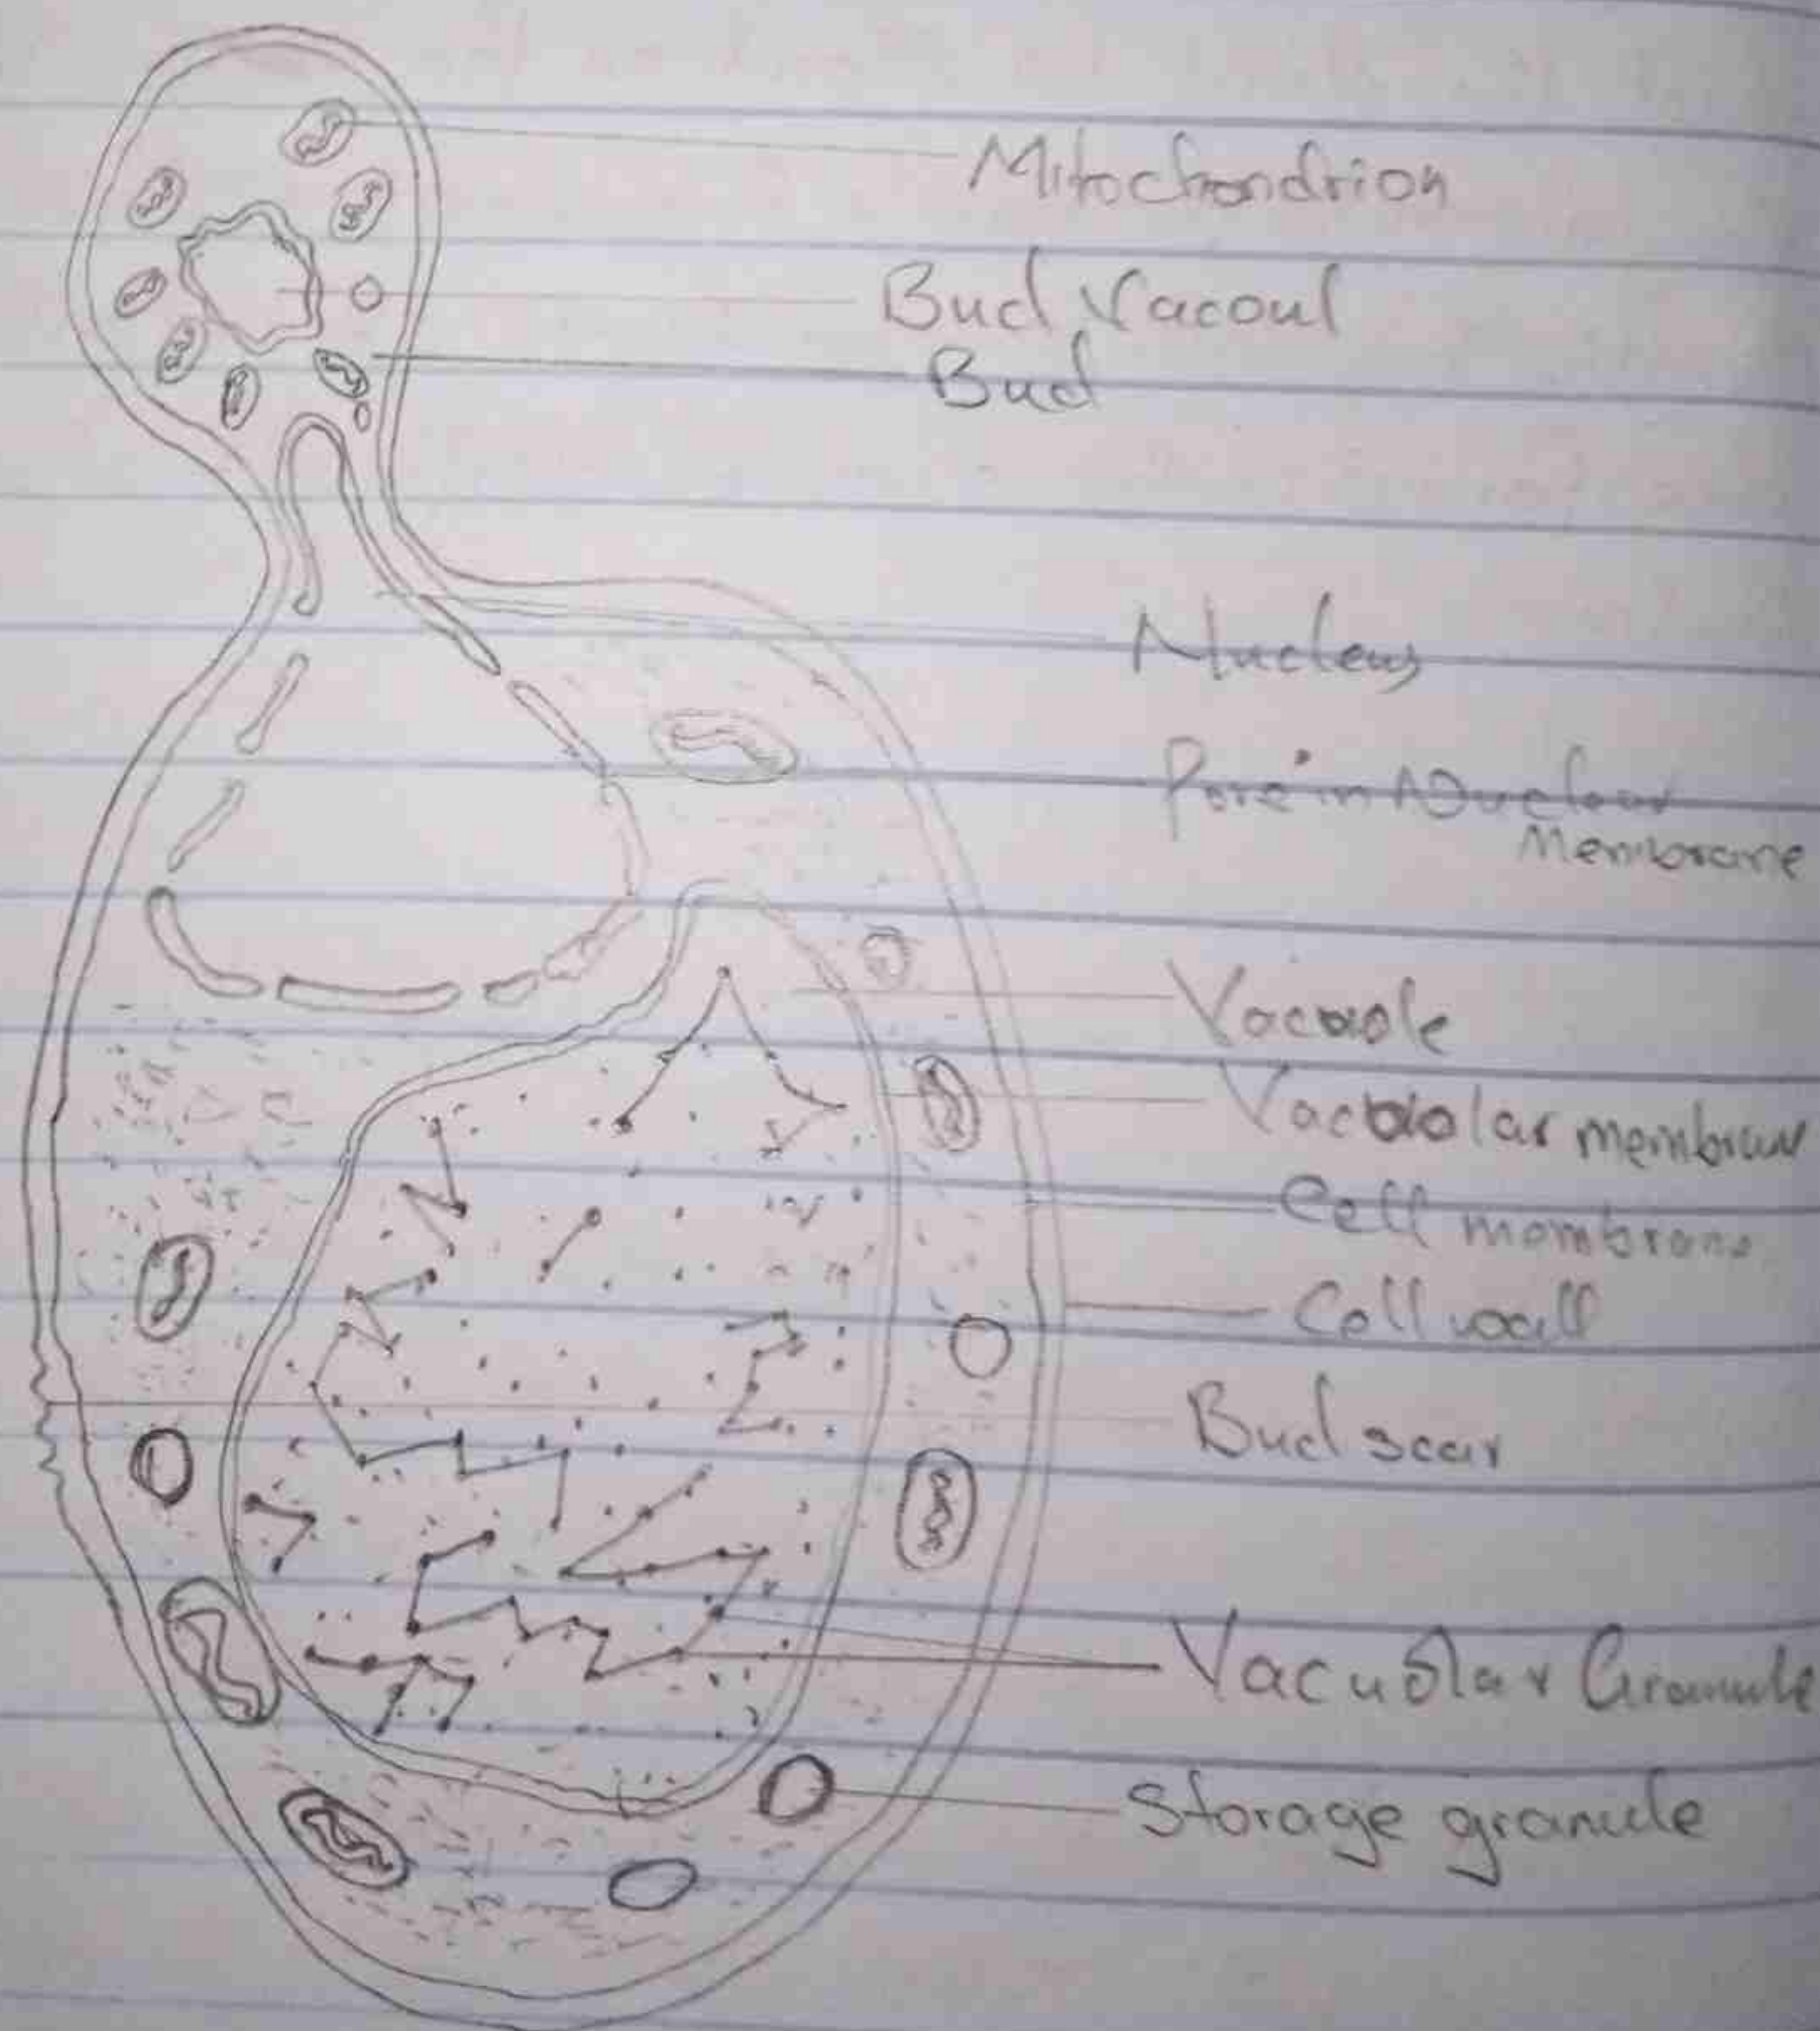 Mitochondrion
Bud Vacoul
Bud
Nucleus
Pore in Nuclear
Membrane
Vacuole
Vacuolar membran
Cell membrane
Cell wall
Bud scar
Vacuolar Granule
Storage granule